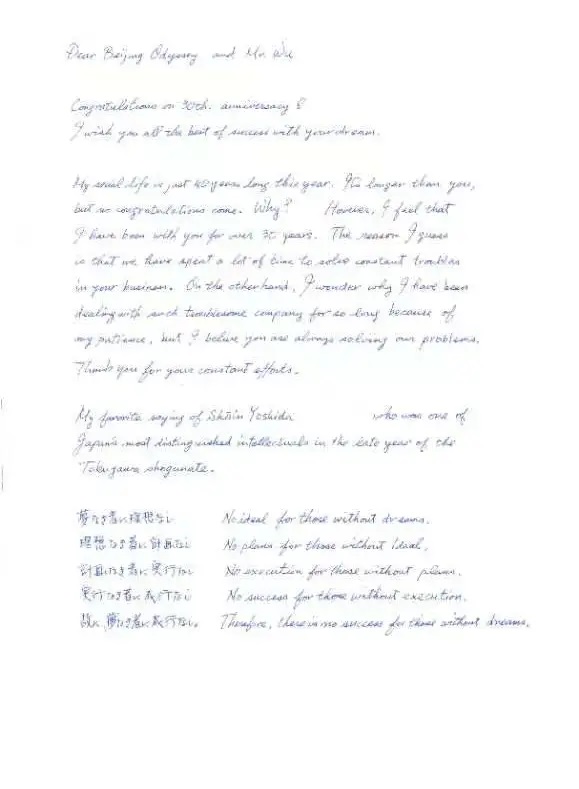 Dear Beijing Odyssey and Mr. Wu
Congratulations on 30th. anniversary !
I wish you all the best of success with your dream.
My serial life is just 42 years long this year. It's longer than you,
but no congratulations come. Why? However, I feel that
I have been with you for over 30 years. The reason I guess
is that we have spent a lot of time to solve constant troubles
in your business. On the other hand, I wonder why I have been
dealing with such troublesome company for so long because of
my patience, but I believe you are always solving our problems.
Thank you for your constant efforts.
My favorite saying of Shōin Yoshida who was one of
Japan's most distinguished intellectuals in the late year of the
Tokugawa shogunate.
夢なき者に理想なし No ideal for those without dreams.
理想なき者に計画なし No plans for those without ideal.
計画なき者に実行なし No execution for those without plans.
実行なき者に成功なし No success for those without execution.
故に、夢なき者に成功なし。 Therefore, there is no success for those without dreams.